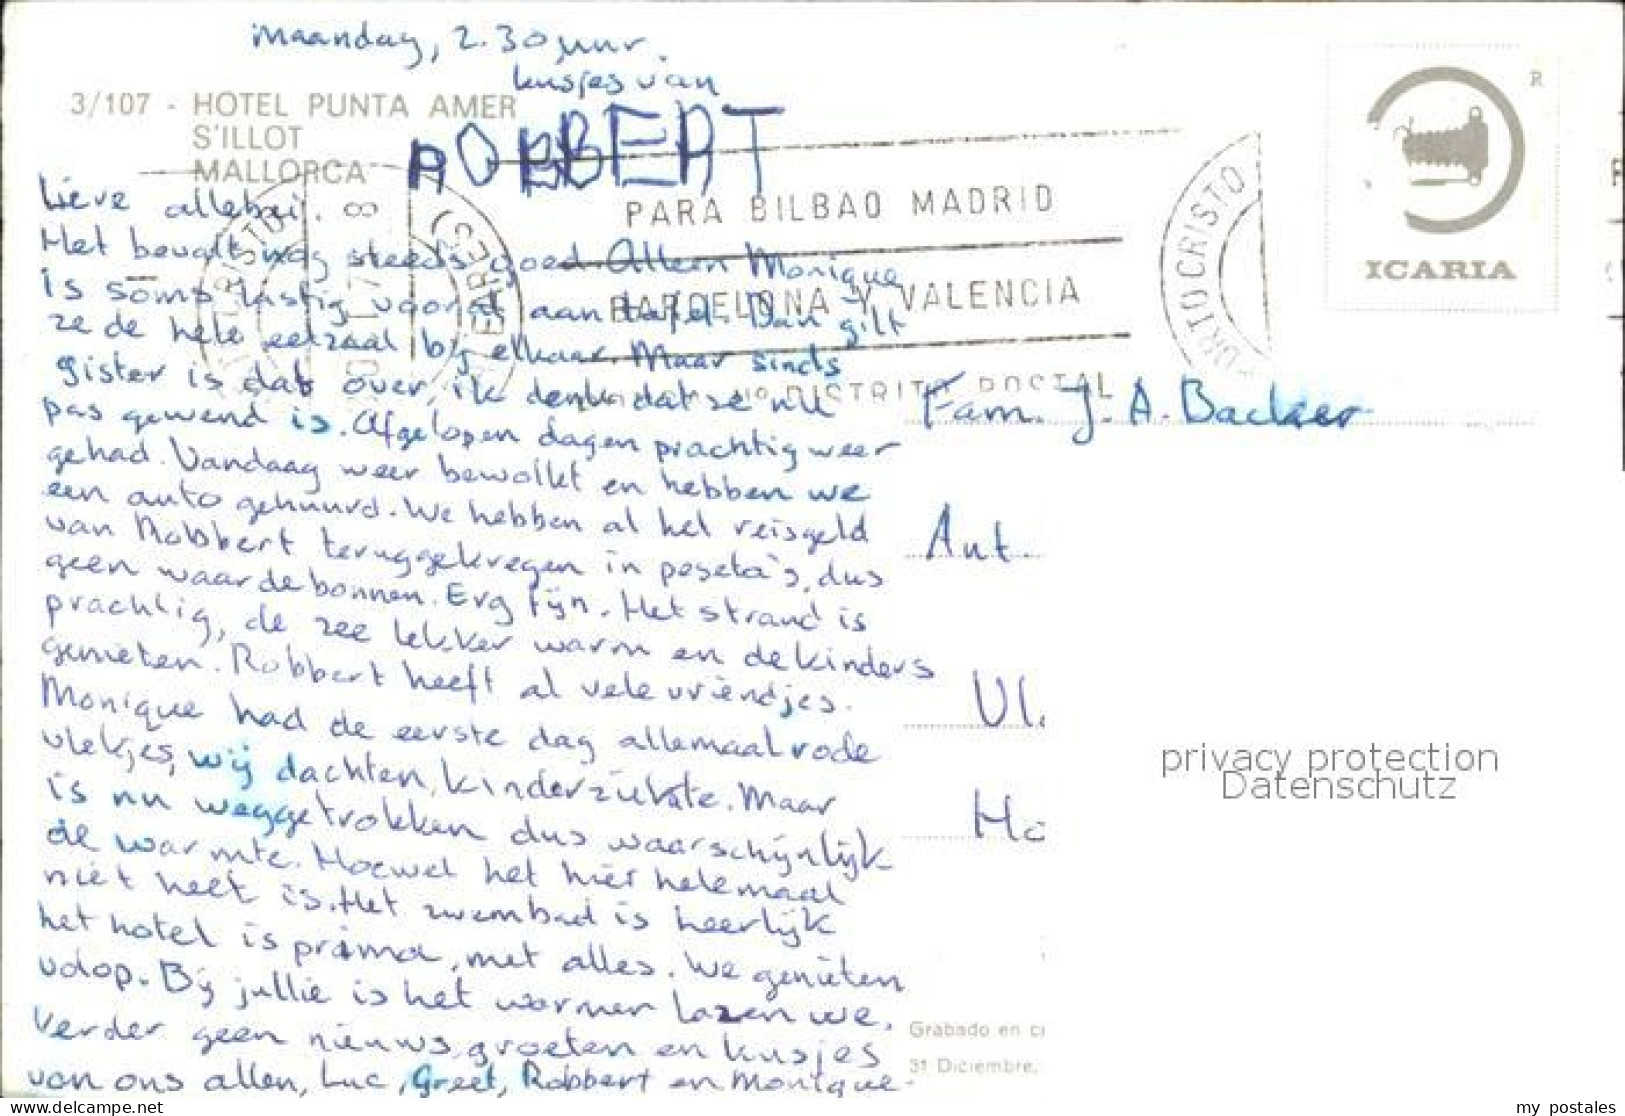 Maandag, 2.30 uur.
kusjes van
ROBBERT
3/107 - HOTEL PUNTA AMER
S'ILLOT
MALLORCA
Lieve allebei.
Het bevalt nog steeds goed. Alleen Monique
is soms lastig vooral aan tafel. Dan gilt
ze de hele eetzaal bij elkaar. Maar sinds
gister is dat over, ik denk dat ze nu
pas gewend is. Afgelopen dagen prachtig weer
gehad. Vandaag weer bewolkt en hebben we
een auto gehuurd. We hebben al het reisgeld
van Robbert teruggekregen in peseta's, dus
geen waardebonnen. Erg fijn. Het strand is
prachtig, de zee lekker warm en de kinders
genieten. Robbert heeft al vele vriendjes.
Monique had de eerste dag allemaal rode
vlekjes, wij dachten, kinderziekte. Maar
is nu weggetrokken dus waarschijnlijk
de warmte. Hoewel het hier helemaal
niet heet is. Het zwembad is heerlijk
het hotel is prima, met alles. We genieten
volop. Bij jullie is het warmer lazen we.
Verder geen nieuws, groeten en kusjes
van ons allen, Luc, Greet, Robbert en Monique.
PARA BILBAO MADRID
BARCELONA Y VALENCIA
DISTRITO POSTAL
CRISTO
ICARIA
R
Fam. J. A. Backer
Ant
Vl.
Ho
privacy protection
Datenschutz
Grabado en
31 Diciembre,
delcampe.net
my_postales